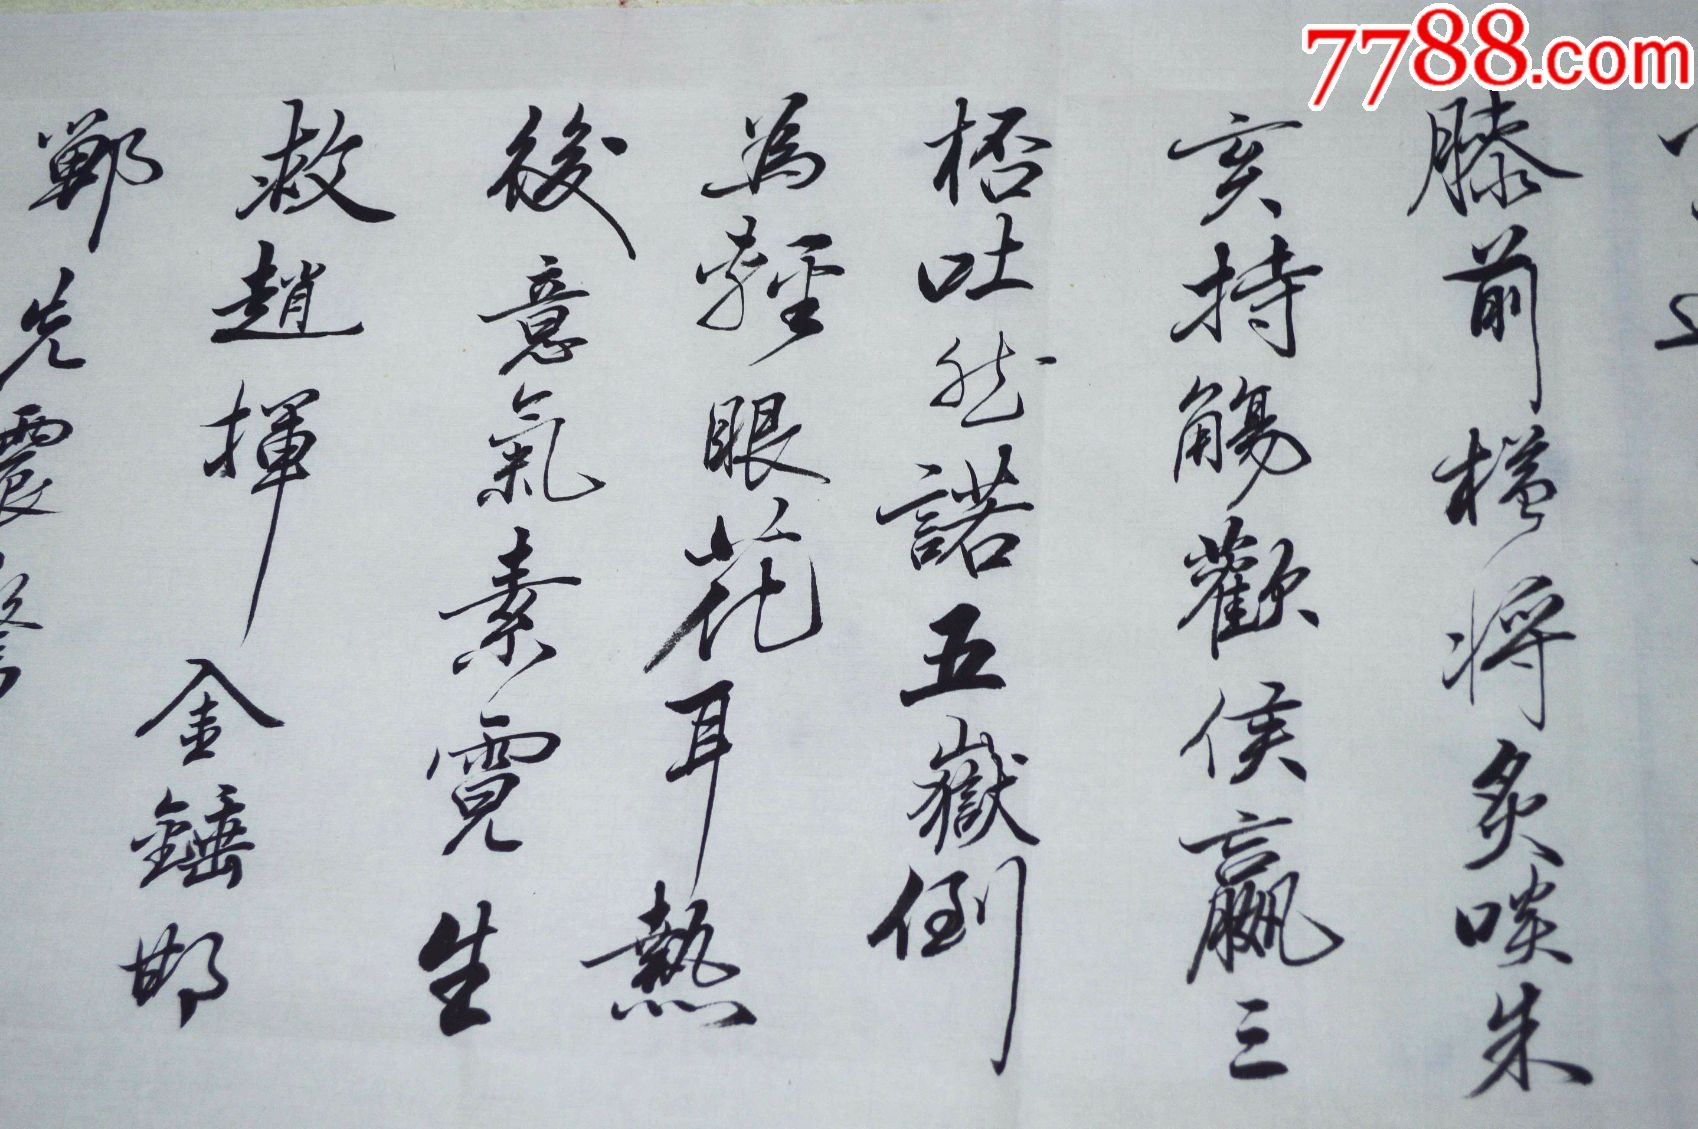 7788.com
膝前橫將炙啖朱
亥持觴歡侯嬴三
桮吐然諾五嶽倒
為輕眼花耳熱
後意氣素霓生
救趙揮金錘邯
鄲先震驚